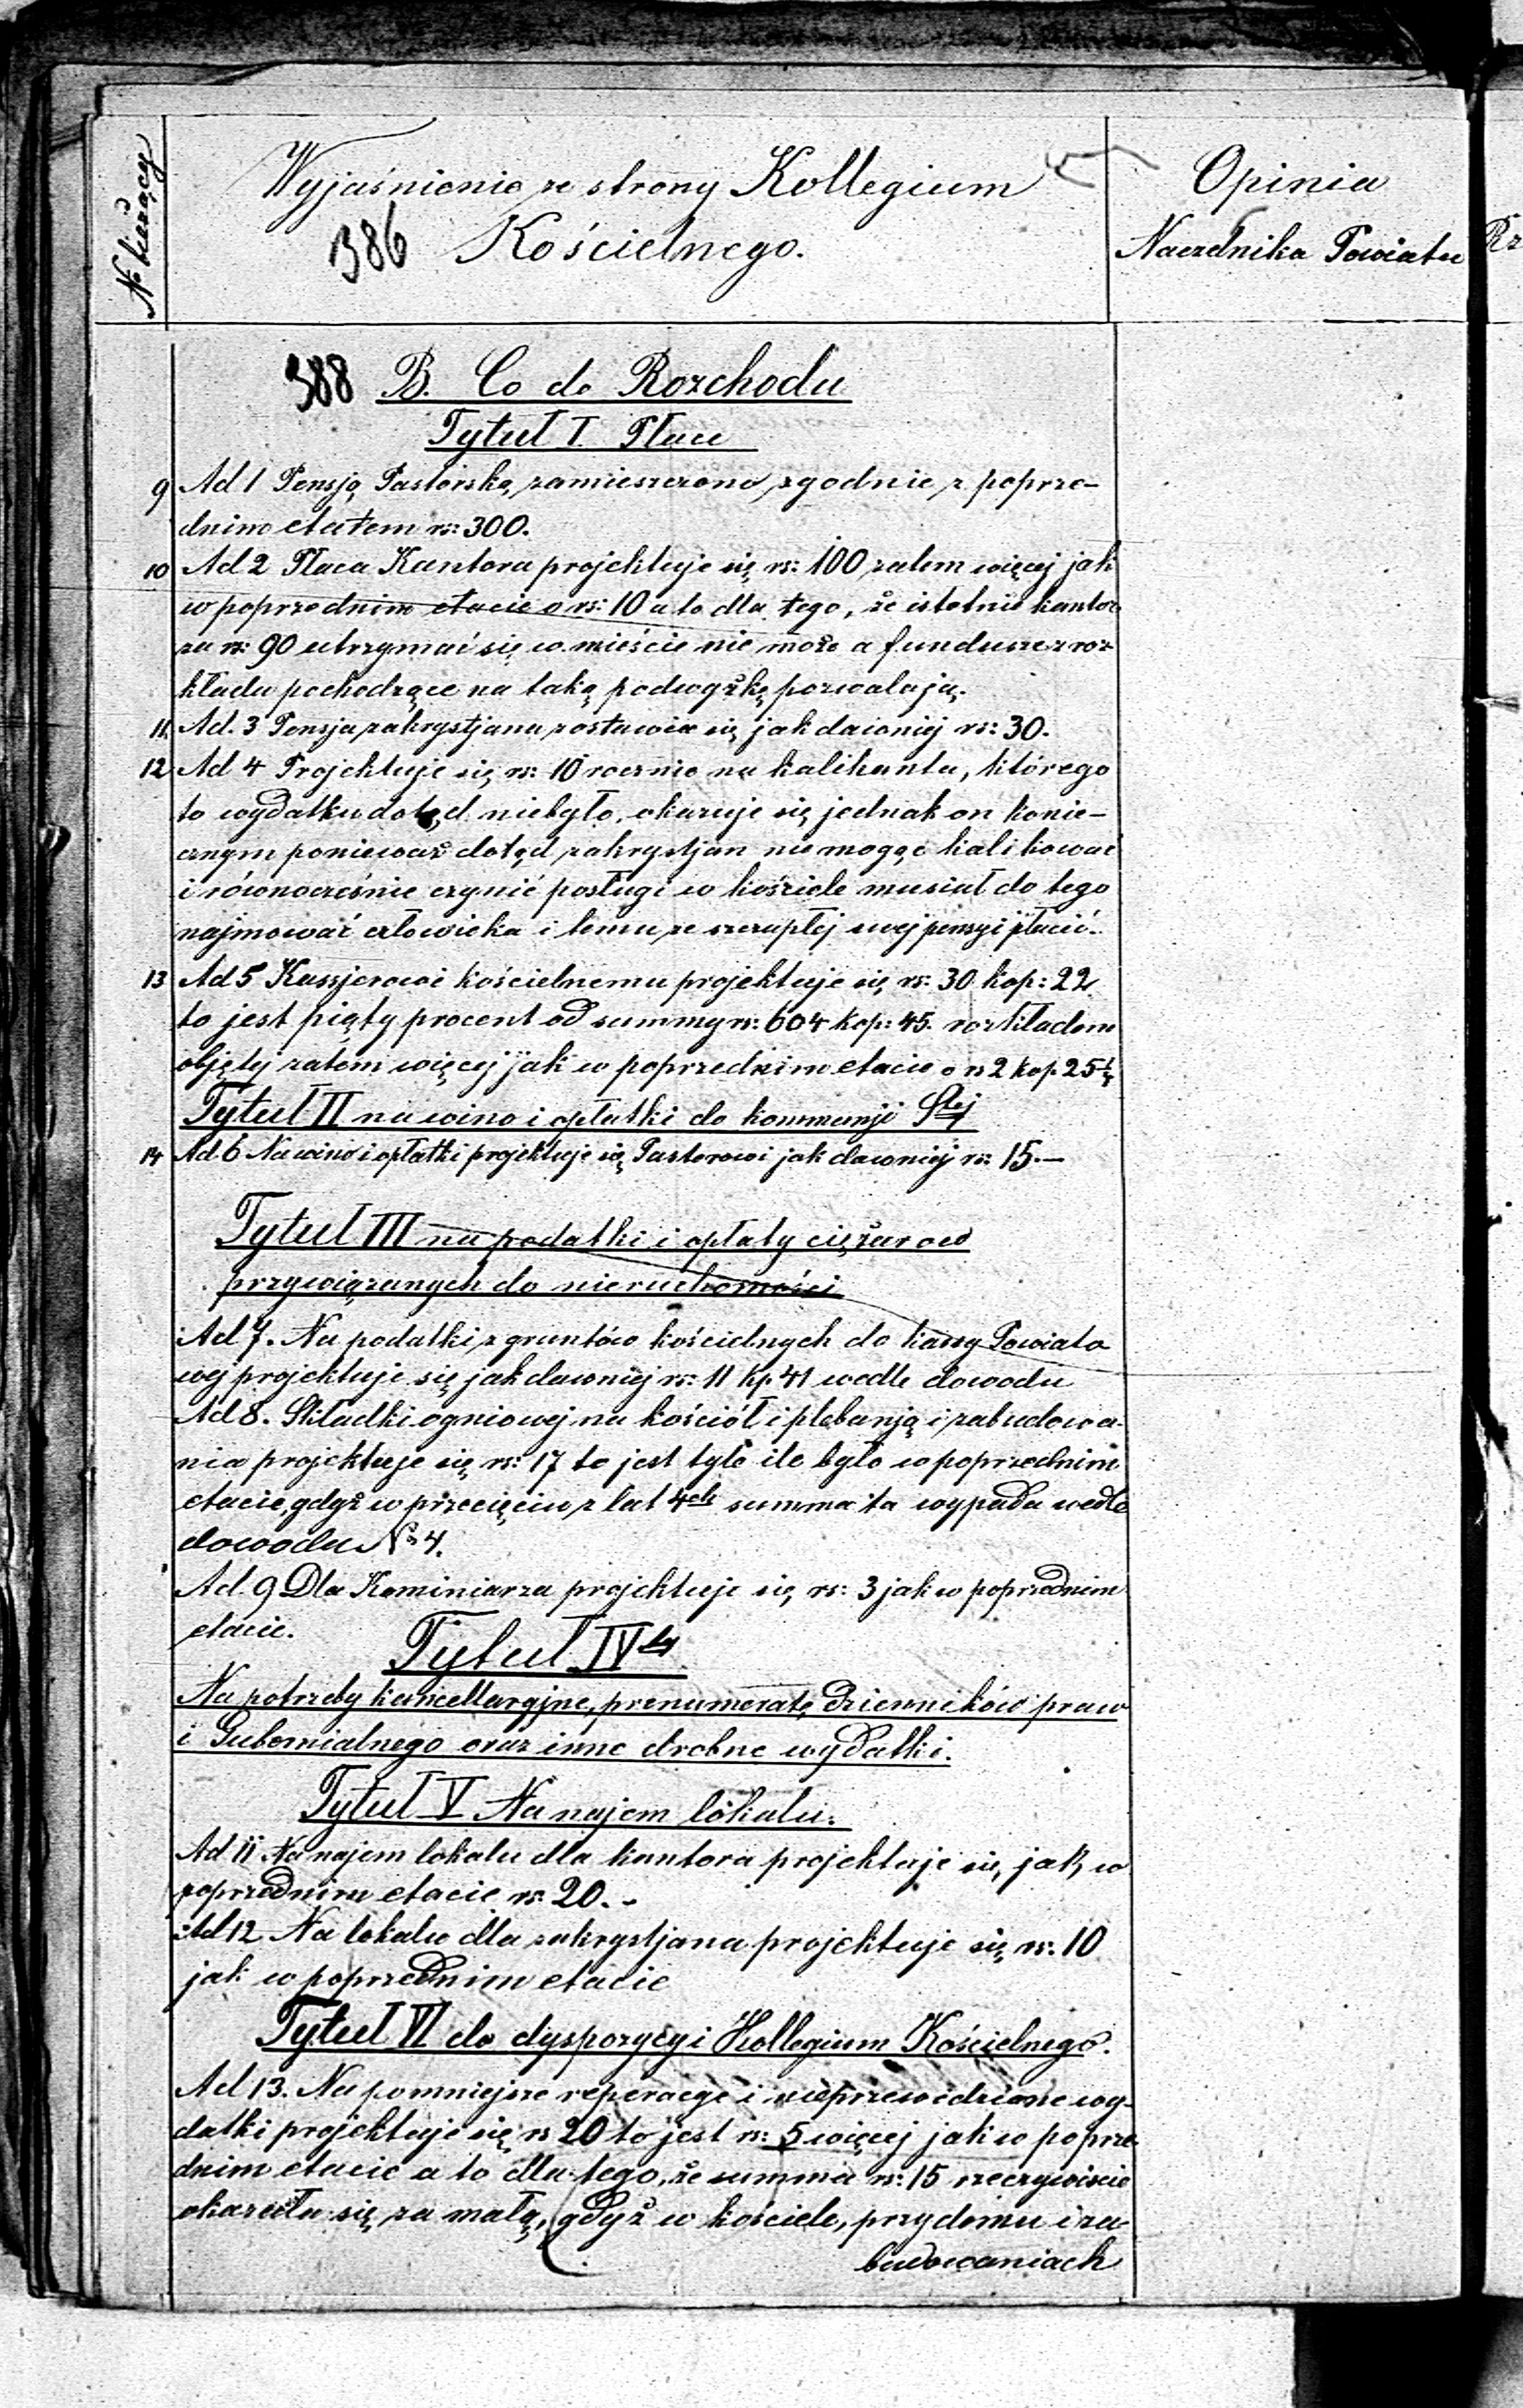 No bieżący
Wyjaśnienie ze strony Kollegium
386 Kościelnego.
Opinia
Naczelnika Powiatu
Rz
388 B. Co do Rozchodu
Tytuł I. Płace
9 Ad 1 Pensją Pastorską zamieszczono zgodnie z poprze-
dnim etatem rs: 300.
10 Ad 2 Płaca Kantora projektuje się rs: 100 zatem więcej jak
w poprzednim etacie o rs: 10 a to dla tego, że istotnie kantor
za rs: 90 utrzymać się w mieście nie może a fundusze z roz
kładu pochodzące na taką podwyżkę pozwalają.
11. Ad. 3 Pensja zakrystjana zostawia się jak dawniej rs: 30.
12 Ad 4 Projektuje się rs: 10 rocznie na kalikanta, którego
to wydatku dotąd niebyło, okazuje się jednak on konie-
cznym ponieważ dotąd zakrystjan nie mogąc kalikować
i równocześnie czynić posługi w kościele musiał do tego
najmować człowieka i temu ze szczupłej swej pensyi płacić.
13 Ad 5 Kassjerowi kościelnemu projektuje się rs: 30 kop: 22
to jest piąty procent od summy rs: 604 kop: 45. rozkładem
objętej zatem więcej jak w poprzednim etacie o rs 2 kop. 25 1/4
Tytuł II na wino i opłatki do kommunji Stej
14 Ad 6 Na wino i opłatki projektuje się Pastorowi jak dawniej rs: 15.—
Tytuł III na podatki i opłaty ciężarów
przywiązanych do nieruchomości
Ad 7. Na podatki z gruntów kościelnych do kassy Powiato
wej projektuje się jak dawniej rs: 11 kp 41 wedle dowodu
Ad 8. Składki ogniowej na kościół i plebanją i zabudowa-
nia projektuje się rs: 17 to jest tyle ile było w poprzednim
etacie, gdyż w przecięciu z lat 4ch summa ta wypada wedle
dowodu No 4.
Ad 9 Dla Kominiarza projektuje się rs: 3 jak w poprzednim
etacie.
Tytuł IVty
Na potrzeby kancellaryjne, prenumeratę Dzienników praw
i Gubernialnego oraz inne drobne wydatki.
Tytuł V Na najem lokalu.
Ad 11 Na najem lokalu dla kantora projektuje się jak w
poprzednim etacie rs. 20.-
Ad 12 Na lokalu dla zakrystjana projektuje się rs. 10
jak w poprzednim etacie
Tytuł VI do dyspozycyi Kollegium Kościelnego.
Ad 13. Na pomniejsze reperacye i nieprzewidziane wy-
datki projektuje się rs 20 to jest rs: 5 więcej jak w poprze-
dnim etacie a to dla tego, że summa rs: 15 rzeczywiście
okazała się za małą, gdyż w kościele, przy domu i za-
budowaniach